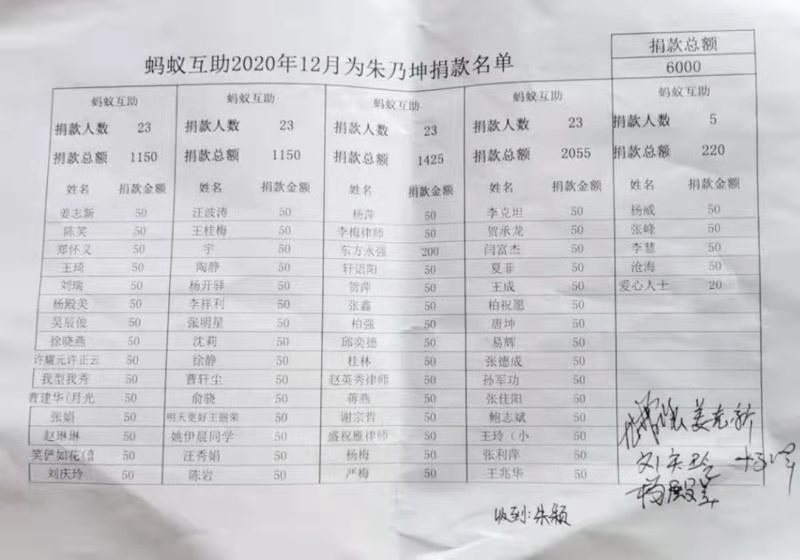 蚂蚁互助2020年12月为朱乃坤捐款名单
捐款总额
6000
蚂蚁互助 蚂蚁互助 蚂蚁互助 蚂蚁互助 蚂蚁互助
捐款人数 23 捐款人数 23 捐款人数 23 捐款人数 23 捐款人数 5
捐款总额 1150 捐款总额 1150 捐款总额 1425 捐款总额 2055 捐款总额 220
姓名 捐款金额 姓名 捐款金额 姓名 捐款金额 姓名 捐款金额 姓名 捐款金额
姜志新 50 汪波涛 50 杨萍 50 李克坦 50 杨威 50
陈笑 50 王桂梅 50 李梅律师 50 贺承龙 50 张峰 50
郑怀义 50 宇 50 东方永强 200 闫富杰 50 李慧 50
王琦 50 陶静 50 轩语阳 50 夏菲 50 沧海 50
刘瑞 50 杨开驿 50 贺萍 50 王成 50 爱心人士 20
杨殿美 50 李祥利 50 张鑫 50 柏祝愿 50
吴辰俊 50 张明星 50 柏强 50 唐坤 50
徐晓燕 50 沈莉 50 邱奕德 50 易辉 50
许耀元许正云 50 徐静 50 桂林 50 张德成 50
我型我秀 50 曹轩尘 50 赵英秀律师 50 孙军功 50
曹建华(月光 50 俞骁 50 蒋燕 50 张佳阳 50
张娟 50 明天更好王丽荣 50 谢宗哲 50 鲍志斌 50
赵琳琳 50 姚伊晨同学 50 盛祝雁律师 50 王玲（小 50
笑俨如花( 50 汪秀娟 50 杨梅 50 张利萍 50
刘庆玲 50 陈岩 50 严梅 50 王兆华 50
姜志新
刘庆玲
杨殿美
收到:朱颖